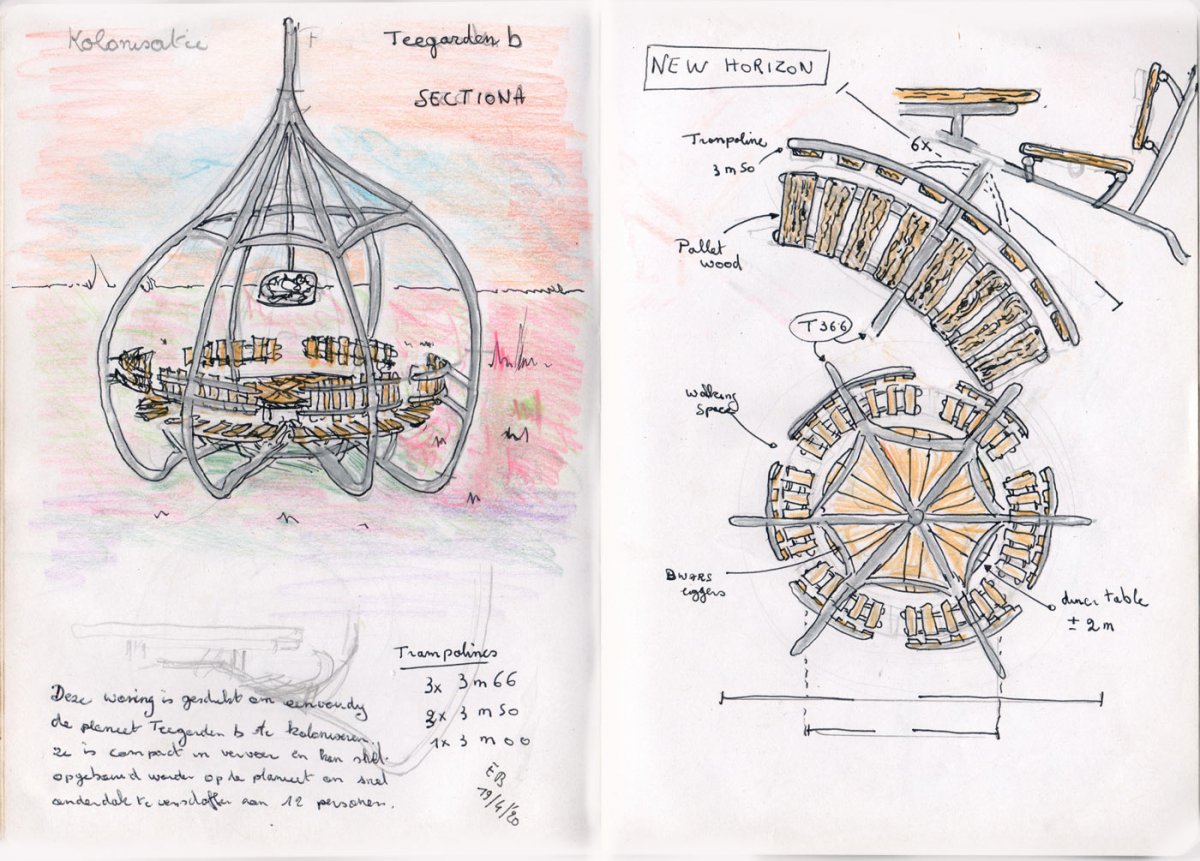 Kolonisatie
Teegarden b
SECTION A
Trampolines
3x 3 m 66
3x 3 m 50
1x 3 m 00
Deze woning is geschikt om eenvoudig
de planeet Teegarden b te koloniseren.
ze is compact in vervoer en kan snel
opgebouwd worden op de planeet om snel
onderdak te verschaffen aan 12 personen.
EB
19/4/20
NEW HORIZON
Trampoline
3 m 50
6x
Pallet
wood
T 366
Walking
Space
Dwars
liggers
diner table
± 2 m